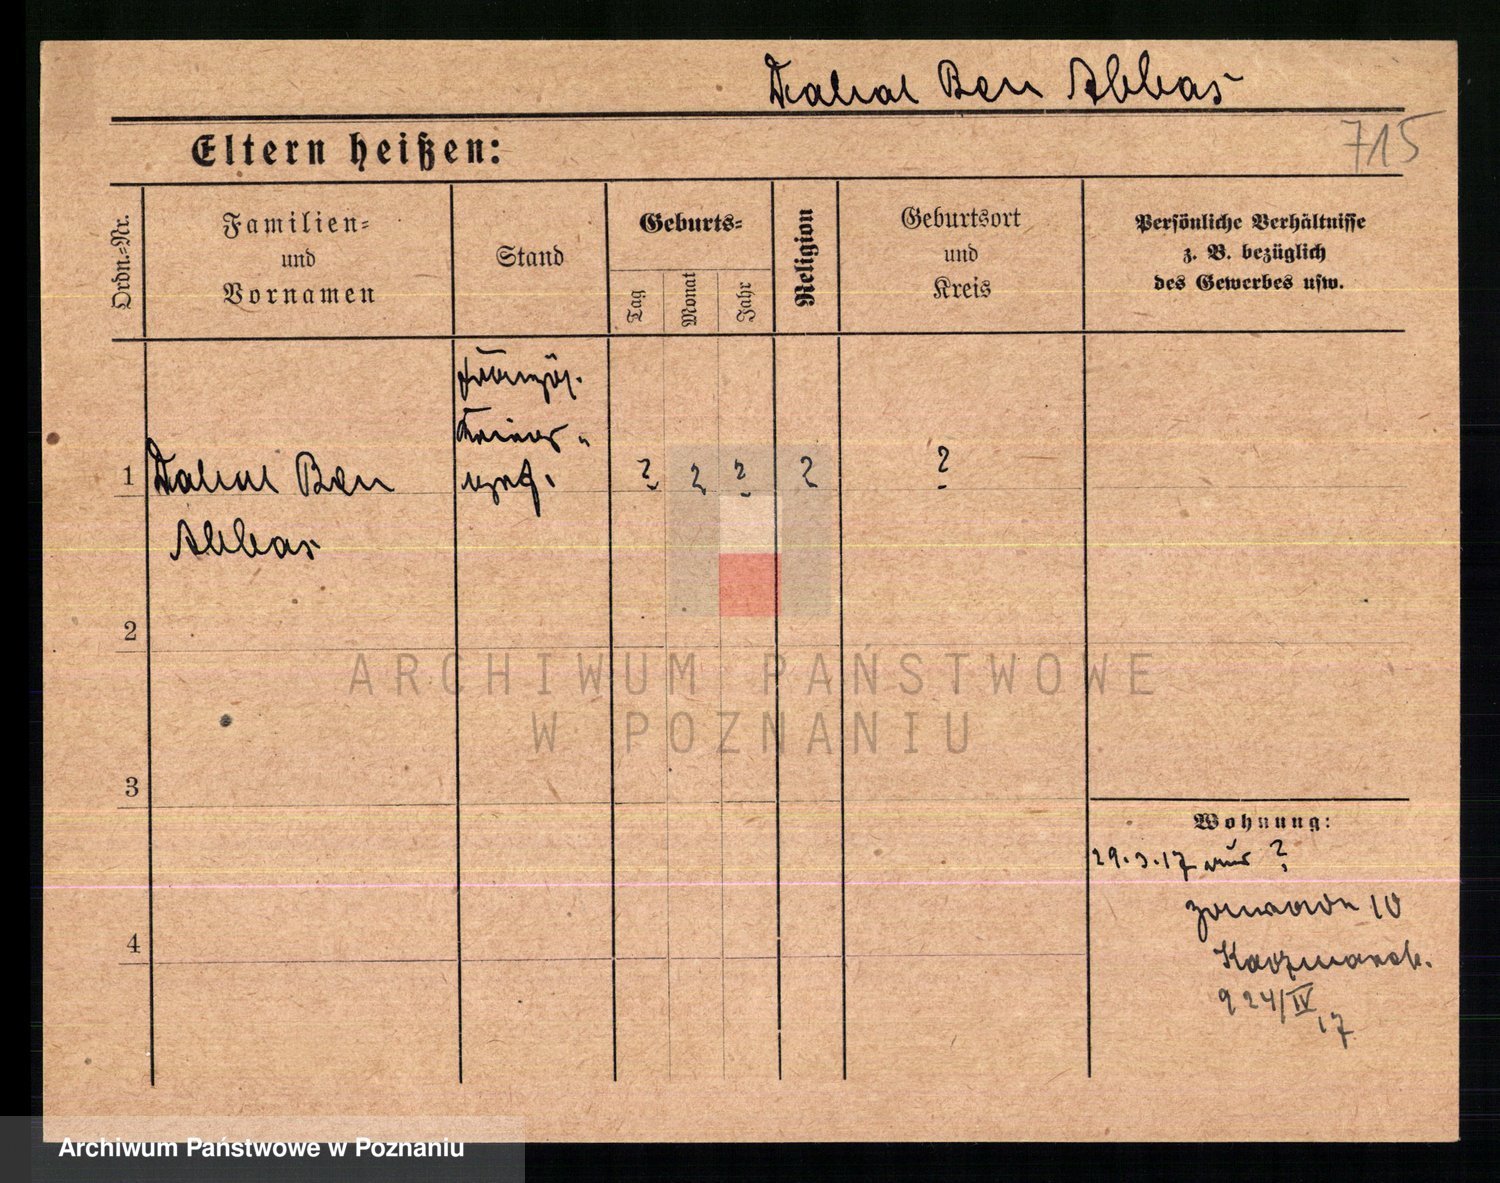 Ben Abbas
715
Eltern heißen:
Ordn.-Nr.
Familien-
und
Vornamen
Stand
Geburts-
Tag
Monat
Jahr
Religion
Geburtsort
und
Kreis
Persönliche Verhältnisse
z. B. bezüglich
des Gewerbes usw.
französ.
1 Ben ? ? ? ? ?
Abbas
2
ARCHIWUM PAŃSTWOWE
W POZNANIU
3
Wohnung:
29.3.17 aus ?
10
Kaczmarek.
924/IV
17
4
Archiwum Państwowe w Poznaniu